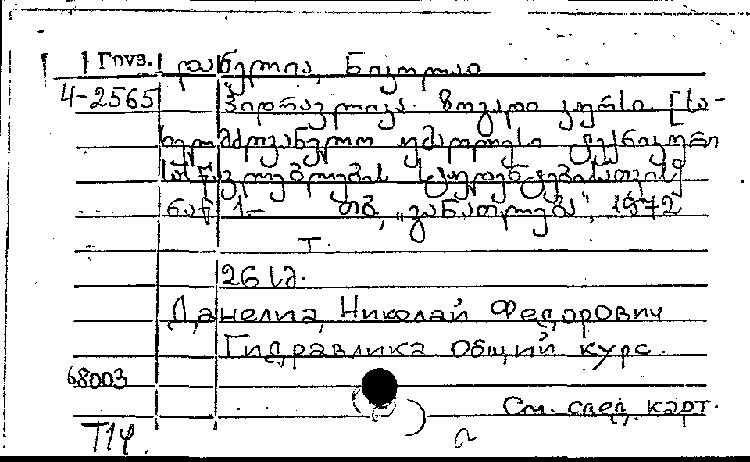 Груз. დანელია, ნიკოლაი
4-2565 ჰიდრავლიკა. ზოგადი კურსი. [სა-
ხელმძღვანელო უმაღლესი ტექნიკური
სასწავლებლების სტუდენტებისათვის]
ნაწ. 1- თბ., „განათლება", 1972
Т.
26 სმ.
Данелиа, Николай Федорович
Гидравлика Общий курс.
68003
См. след. карт.